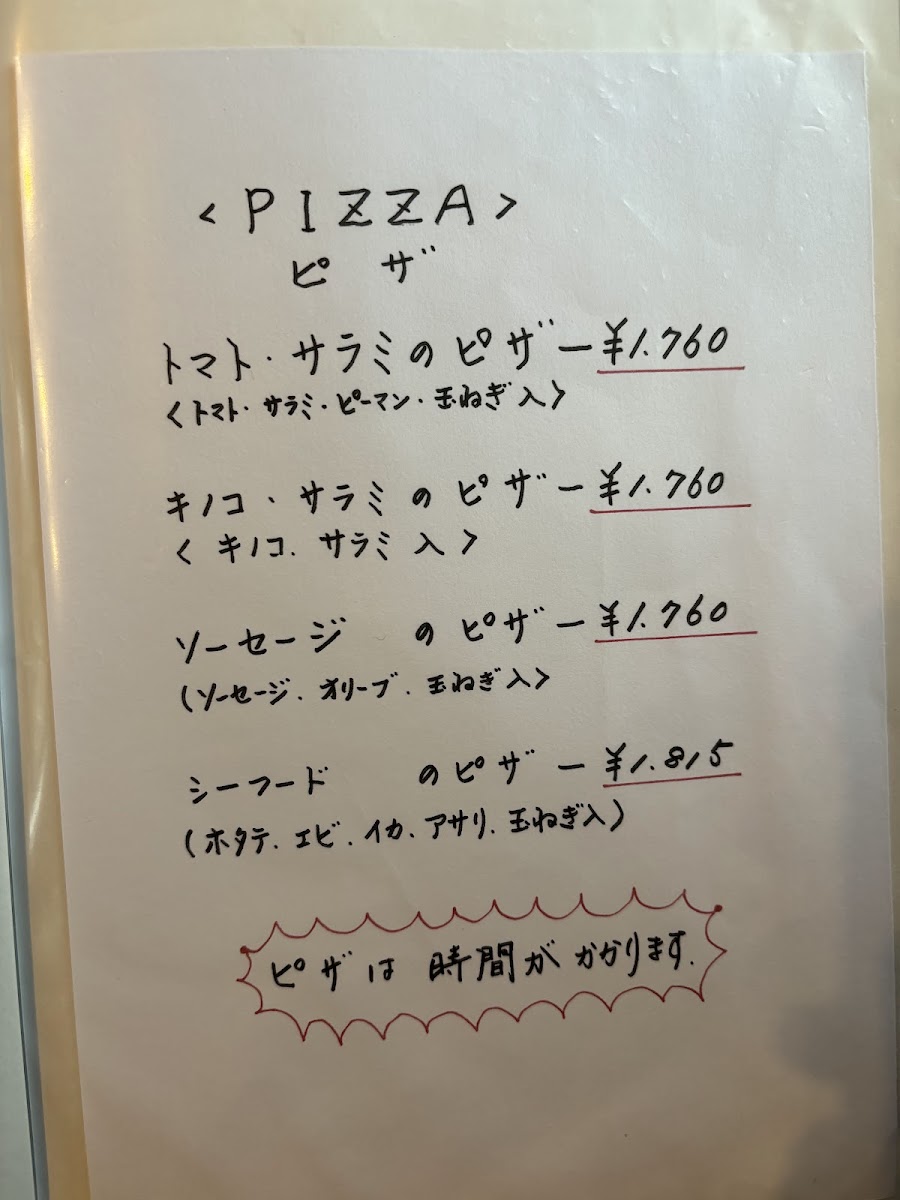 <PIZZA>
ピザ
トマト・サラミのピザー¥1.760
<トマト・サラミ・ピーマン・玉ねぎ入>
キノコ・サラミのピザー¥1.760
<キノコ.サラミ入>
ソーセージ のピザー¥1.760
(ソーセージ.オリーブ.玉ねぎ入>
シーフード のピザー¥1.815
(ホタテ.エビ.イカ.アサリ.玉ねぎ入)
ピザは時間がかかります.